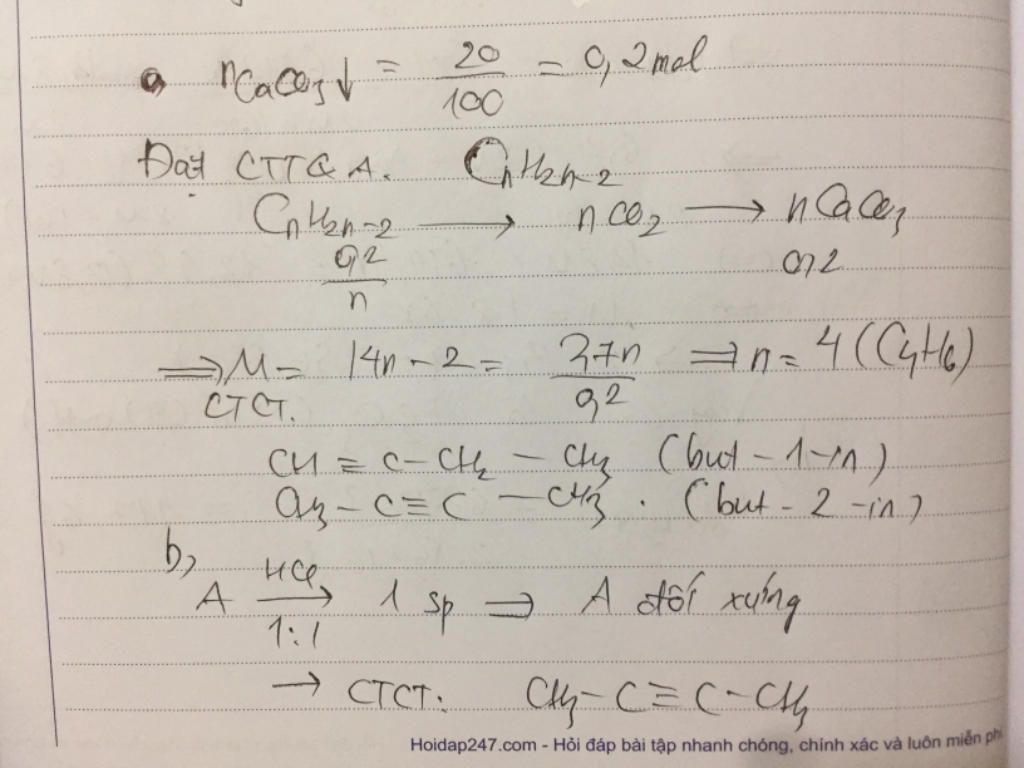 a, nCaCO3↓ = 20/100 = 0,2 mol
Đặt CTTQ A. CnH2n-2
CnH2n-2 ⟶ nCO2 ⟶ nCaCO3
0,2/n 0,2
⟹ M = 14n - 2 = 2,7n/0,2 ⟹ n = 4 (C4H6)
CTCT.
CH ≡ C - CH2 - CH3 (but - 1 - in)
CH3 - C ≡ C - CH3. (but - 2 - in)
b,
A ⟶ HCl 1:1 1 sp ⟹ A đối xứng
→ CTCT: CH3 - C ≡ C - CH3
Hoidap247.com - Hỏi đáp bài tập nhanh chóng, chính xác và luôn miễn phí